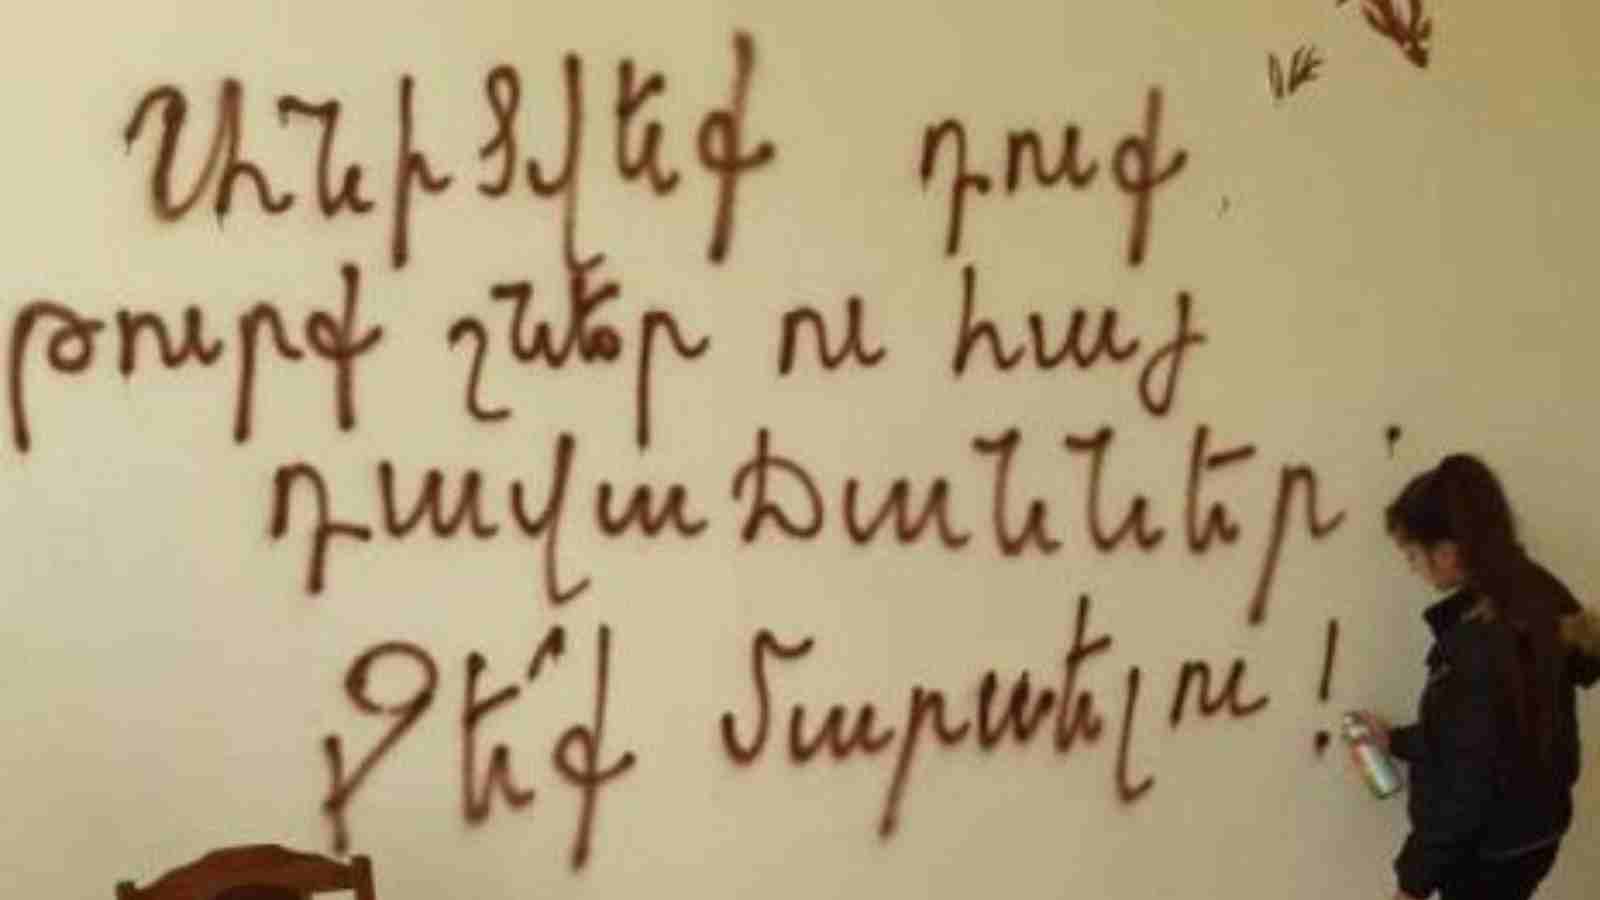 Անիծյեք դուք
թուրք շներ ու հայ
դավաճաններ
Չե՛ք մարսելու!